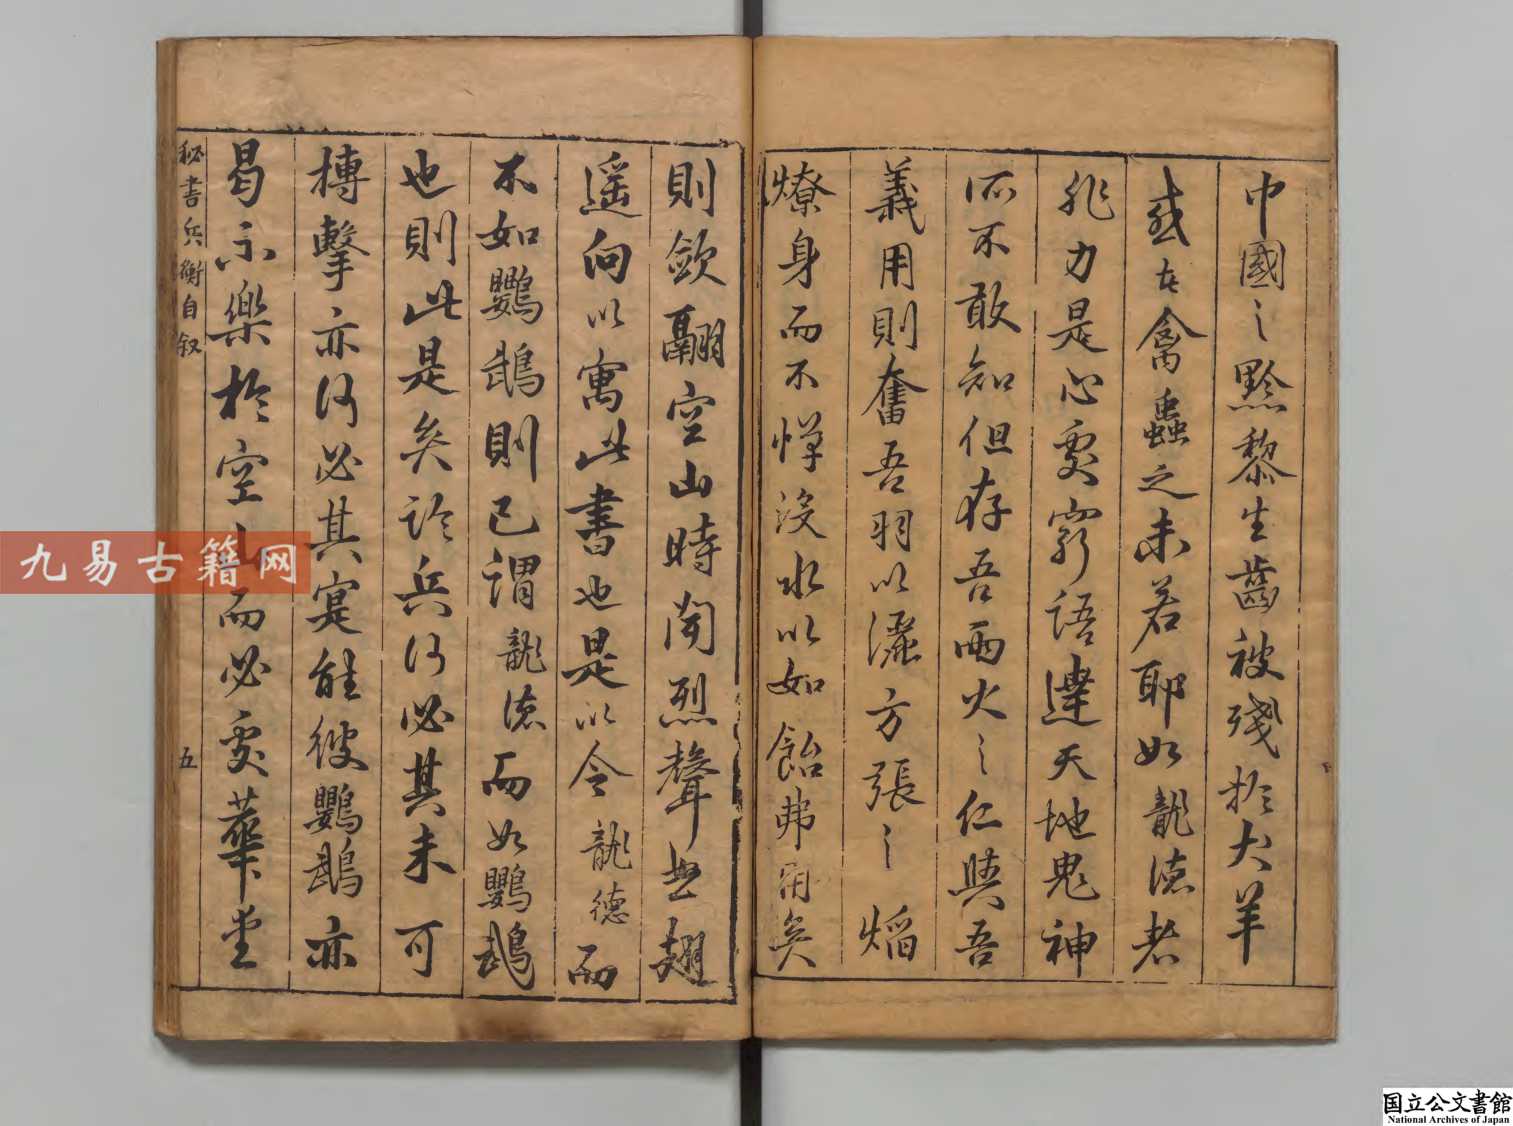 中國之黔黎生齒被殘於犬羊
或在禽蟲之未若耶如龍德者
非力是心更窮語達天地鬼神
所不敢知但存吾兩火之仁與吾
義用則奮吾羽以灑方張之熖
燎身而不憚沒水以如飴弗用矣
則歛翮空山時聞烈聲無翅
遥向以寓此書也是以今龍德而
不如鸚鵡則已謂龍德而如鸚鵡
也則此是矣論兵何必其未可
摶擊亦何必其寔能彼鸚鵡亦
曷不樂於空山而必處華堂
秘書兵衡自叙
五
九易古籍网
国立公文書館
National Archives of Japan